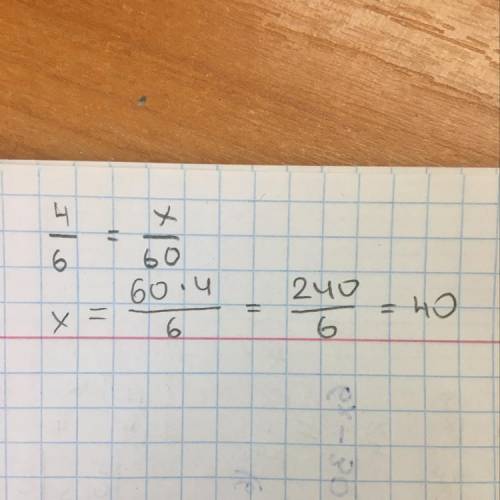 4/6 = x/60
x = 60·4/6 = 240/6 = 40